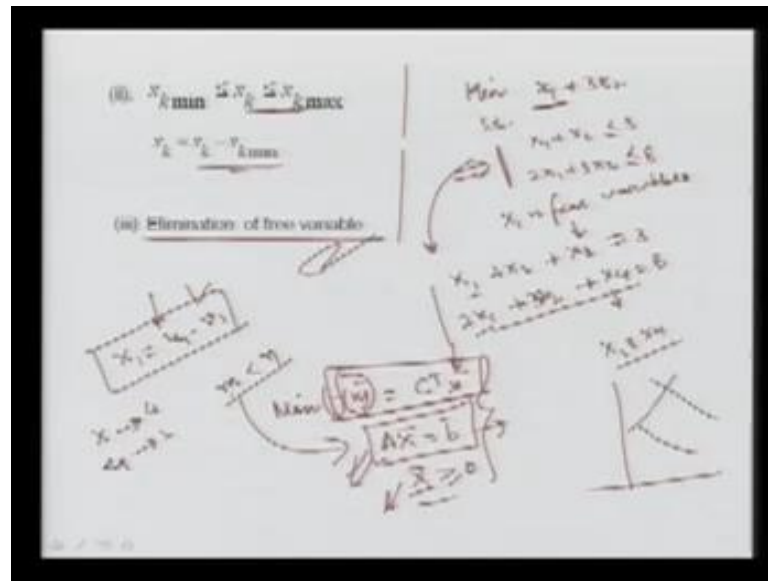 (ii). x_k min ≤ x_k ≤ x_k max
x_k = x_k - x_k min
(iii) Elimination of free variable
Min x₁ + 3x₂
x₁ + x₂ ≤ 3
2x₁ + 3x₂ ≤ 8
x₁ is free variables
+ x₃ = 3
2x₁ + 3x₂ + x₄ = 8
x₁ = u₁ - v₁
m < n
Min = Cᵀ x
A x̄ = b
x̄ ≥ 0